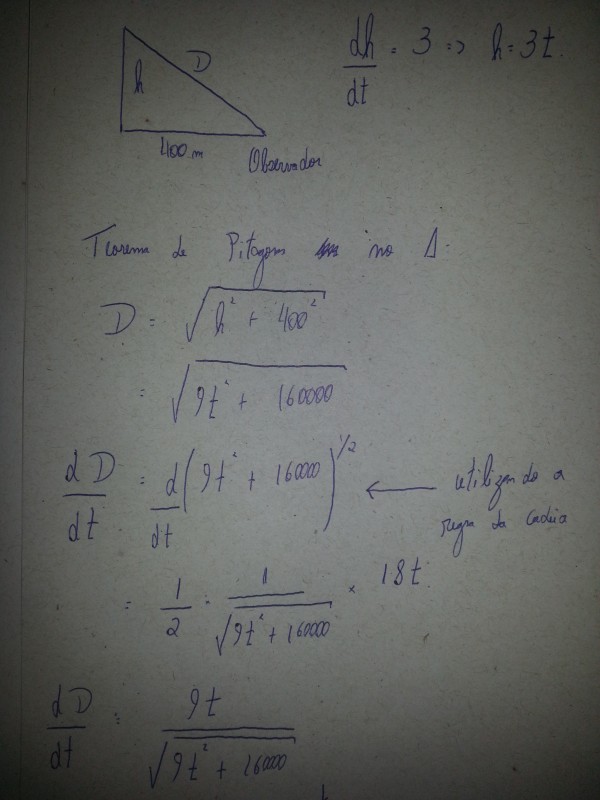 h
D
400 m
Observador
dh/dt = 3 => h = 3t.
Teorema de Pitagoras no Δ:
D = √(h² + 400²)
= √(9t² + 160000)
dD/dt = d/dt (9t² + 160000)^1/2 ← utilizando a
regra da cadeia
= 1/2 · 1/√(9t² + 160000) × 18t
dD/dt = 9t/√(9t² + 160000)